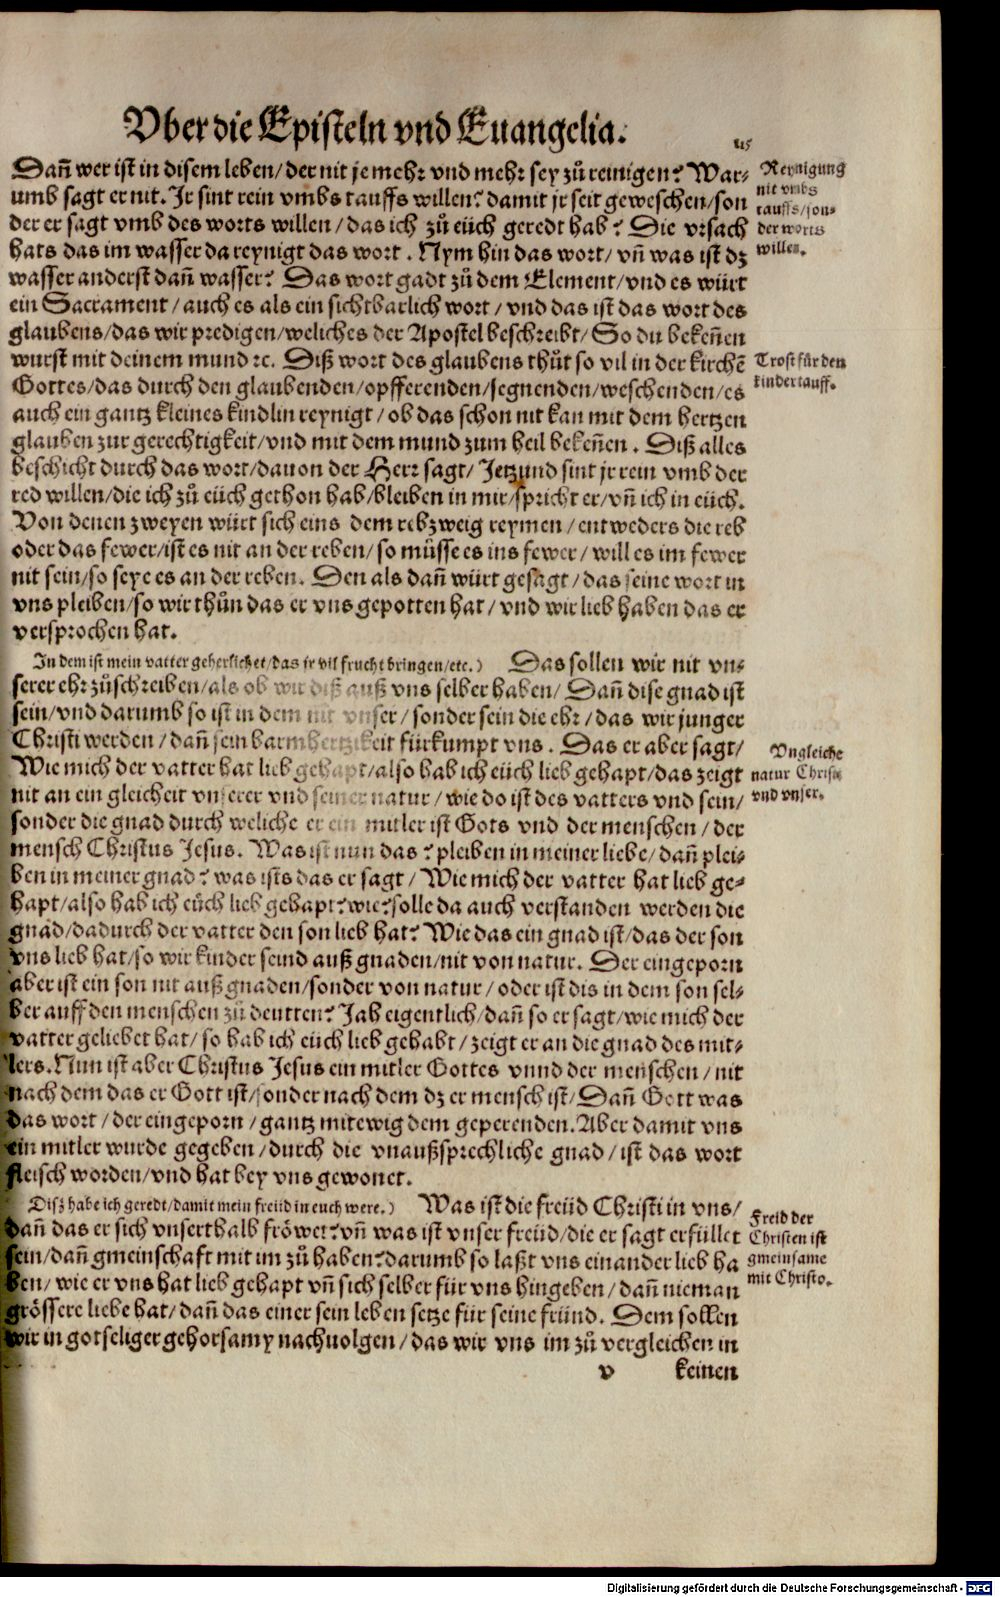 Vber die Episteln vnd Euangelia.
Dañ wer ist in disem leben/der nit je mehr vnd mehr sey zů reinigen? War-
umb sagt er nit. Ir sint rein vmbs tauffs willen? damit jr seit geweschen/son
der er sagt vmb des worts willen/das ich zů eüch geredt hab? Die vrsach
hats das im wasser da reynigt das wort. Nym hin das wort/vñ was ist dz
wasser anderst dañ wasser? Das wort gadt zů dem Element/vnd es würt
ein Sacrament/auch es als ein sichtbarlich wort/vnd das ist das wort des
glaubens/das wir predigen/weliches der Apostel beschreibt/So du bekeñen
wurst mit deinem mund ꝛc. Diß wort des glaubens thůt so vil in der kirchē
Gottes/das durch den glaubenden/opfferenden/segnenden/weschenden/es
auch ein gantz kleines kindlin reynigt/ob das schon nit kan mit dem hertzen
glauben zur gerechtigkeit/vnd mit dem mund zum heil bekeñen. Diß alles
beschicht durch das wort/dauon der Herr sagt/Jetzund sint jr rein vmb der
red willen/die ich zů eüch gethon hab/bleiben in mir/spricht er/vñ ich in eüch.
Von denen zweyen würt sich eins dem rebzweig reymen/entweders die reb
oder das fewer/ist es nit an der reben/so müsse es ins fewer/will es im fewer
nit sein/so seye es an der reben. Den als dañ würt gesagt/das seine wort in
vns pleiben/so wir thůn das er vns gepotten hat/vnd wir lieb haben das er
versprochen hat.
In dem ist mein vatter geherlichet/das ir vil frucht bringen/etc.) Das sollen wir nit vn-
serer ehr zůschreiben/als ob wir diß auß vns selber haben/Dañ dise gnad ist
sein/vnd darumb so ist in dem nit vnser/sonder sein die ehr/das wir junger
Christi werden/dañ sein barmhertzikeit fürkumpt vns. Das er aber sagt/
Wie mich der vatter hat lieb gehapt/also hab ich eüch lieb gehapt/das zeigt
nit an ein gleicheit vnserer vnd seiner natur/wie do ist des vatters vnd sein/
sonder die gnad durch weliche er ein mitler ist Gots vnd der menschen/der
mensch Christus Jesus. Was ist nun das? pleiben in meiner liebe/dañ plei-
ben in meiner gnad? was ists das er sagt/Wie mich der vatter hat lieb ge-
hapt/also hab ich eüch lieb gehapt? wie? solle da auch verstanden werden die
gnad/dadurch der vatter den son lieb hat? Wie das ein gnad ist/das der son
vns lieb hat/so wir kinder seind auß gnaden/nit von natur. Der eingeporn
aber ist ein son nit auß gnaden/sonder von natur/oder ist dis in dem son sel-
ber auff den menschen zů deutten? Jah eigentlich/dañ so er sagt/wie mich der
vatter geliebet hat/so hab ich eüch lieb gehabt/zeigt er an die gnad des mit-
lers. Nun ist aber Christus Jesus ein mitler Gottes vnnd der menschen/nit
nach dem das er Gott ist/sonder nach dem dz er mensch ist/Dañ Gott was
das wort/der eingeporn/gantz mitewig dem geperenden. Aber damit vns
ein mitler wurde gegeben/durch die vnaußsprechliche gnad/ist das wort
fleisch worden/vnd hat bey vns gewonet.
Disz habe ich geredt/damit mein freüd in euch were.) Was ist die freüd Christi in vns/
dañ das er sich vnserthalb fröwet? vñ was ist vnser freüd/die er sagt erfüllet
sein/dañ gmeinschaft mit im zů haben? darumb so laßt vns einander lieb ha
ben/wie er vns hat lieb gehapt vñ sich selber für vns hingeben/dañ nieman
grössere liebe hat/dañ das einer sein leben setze für seine fründ. Dem sollen
wir in gotseliger gehorsamy nachuolgen/das wir vns im zů vergleichen in
v keinen
Reynigung
nit vmbs
tauffs/son-
der worts
willen.
Trost für den
kinder tauff.
Vngleiche
natur Christi
vnd vnser.
Freid der
Christen ist
gmeinsame
mit Christo.
Digitalisierung gefördert durch die Deutsche Forschungsgemeinschaft - DFG